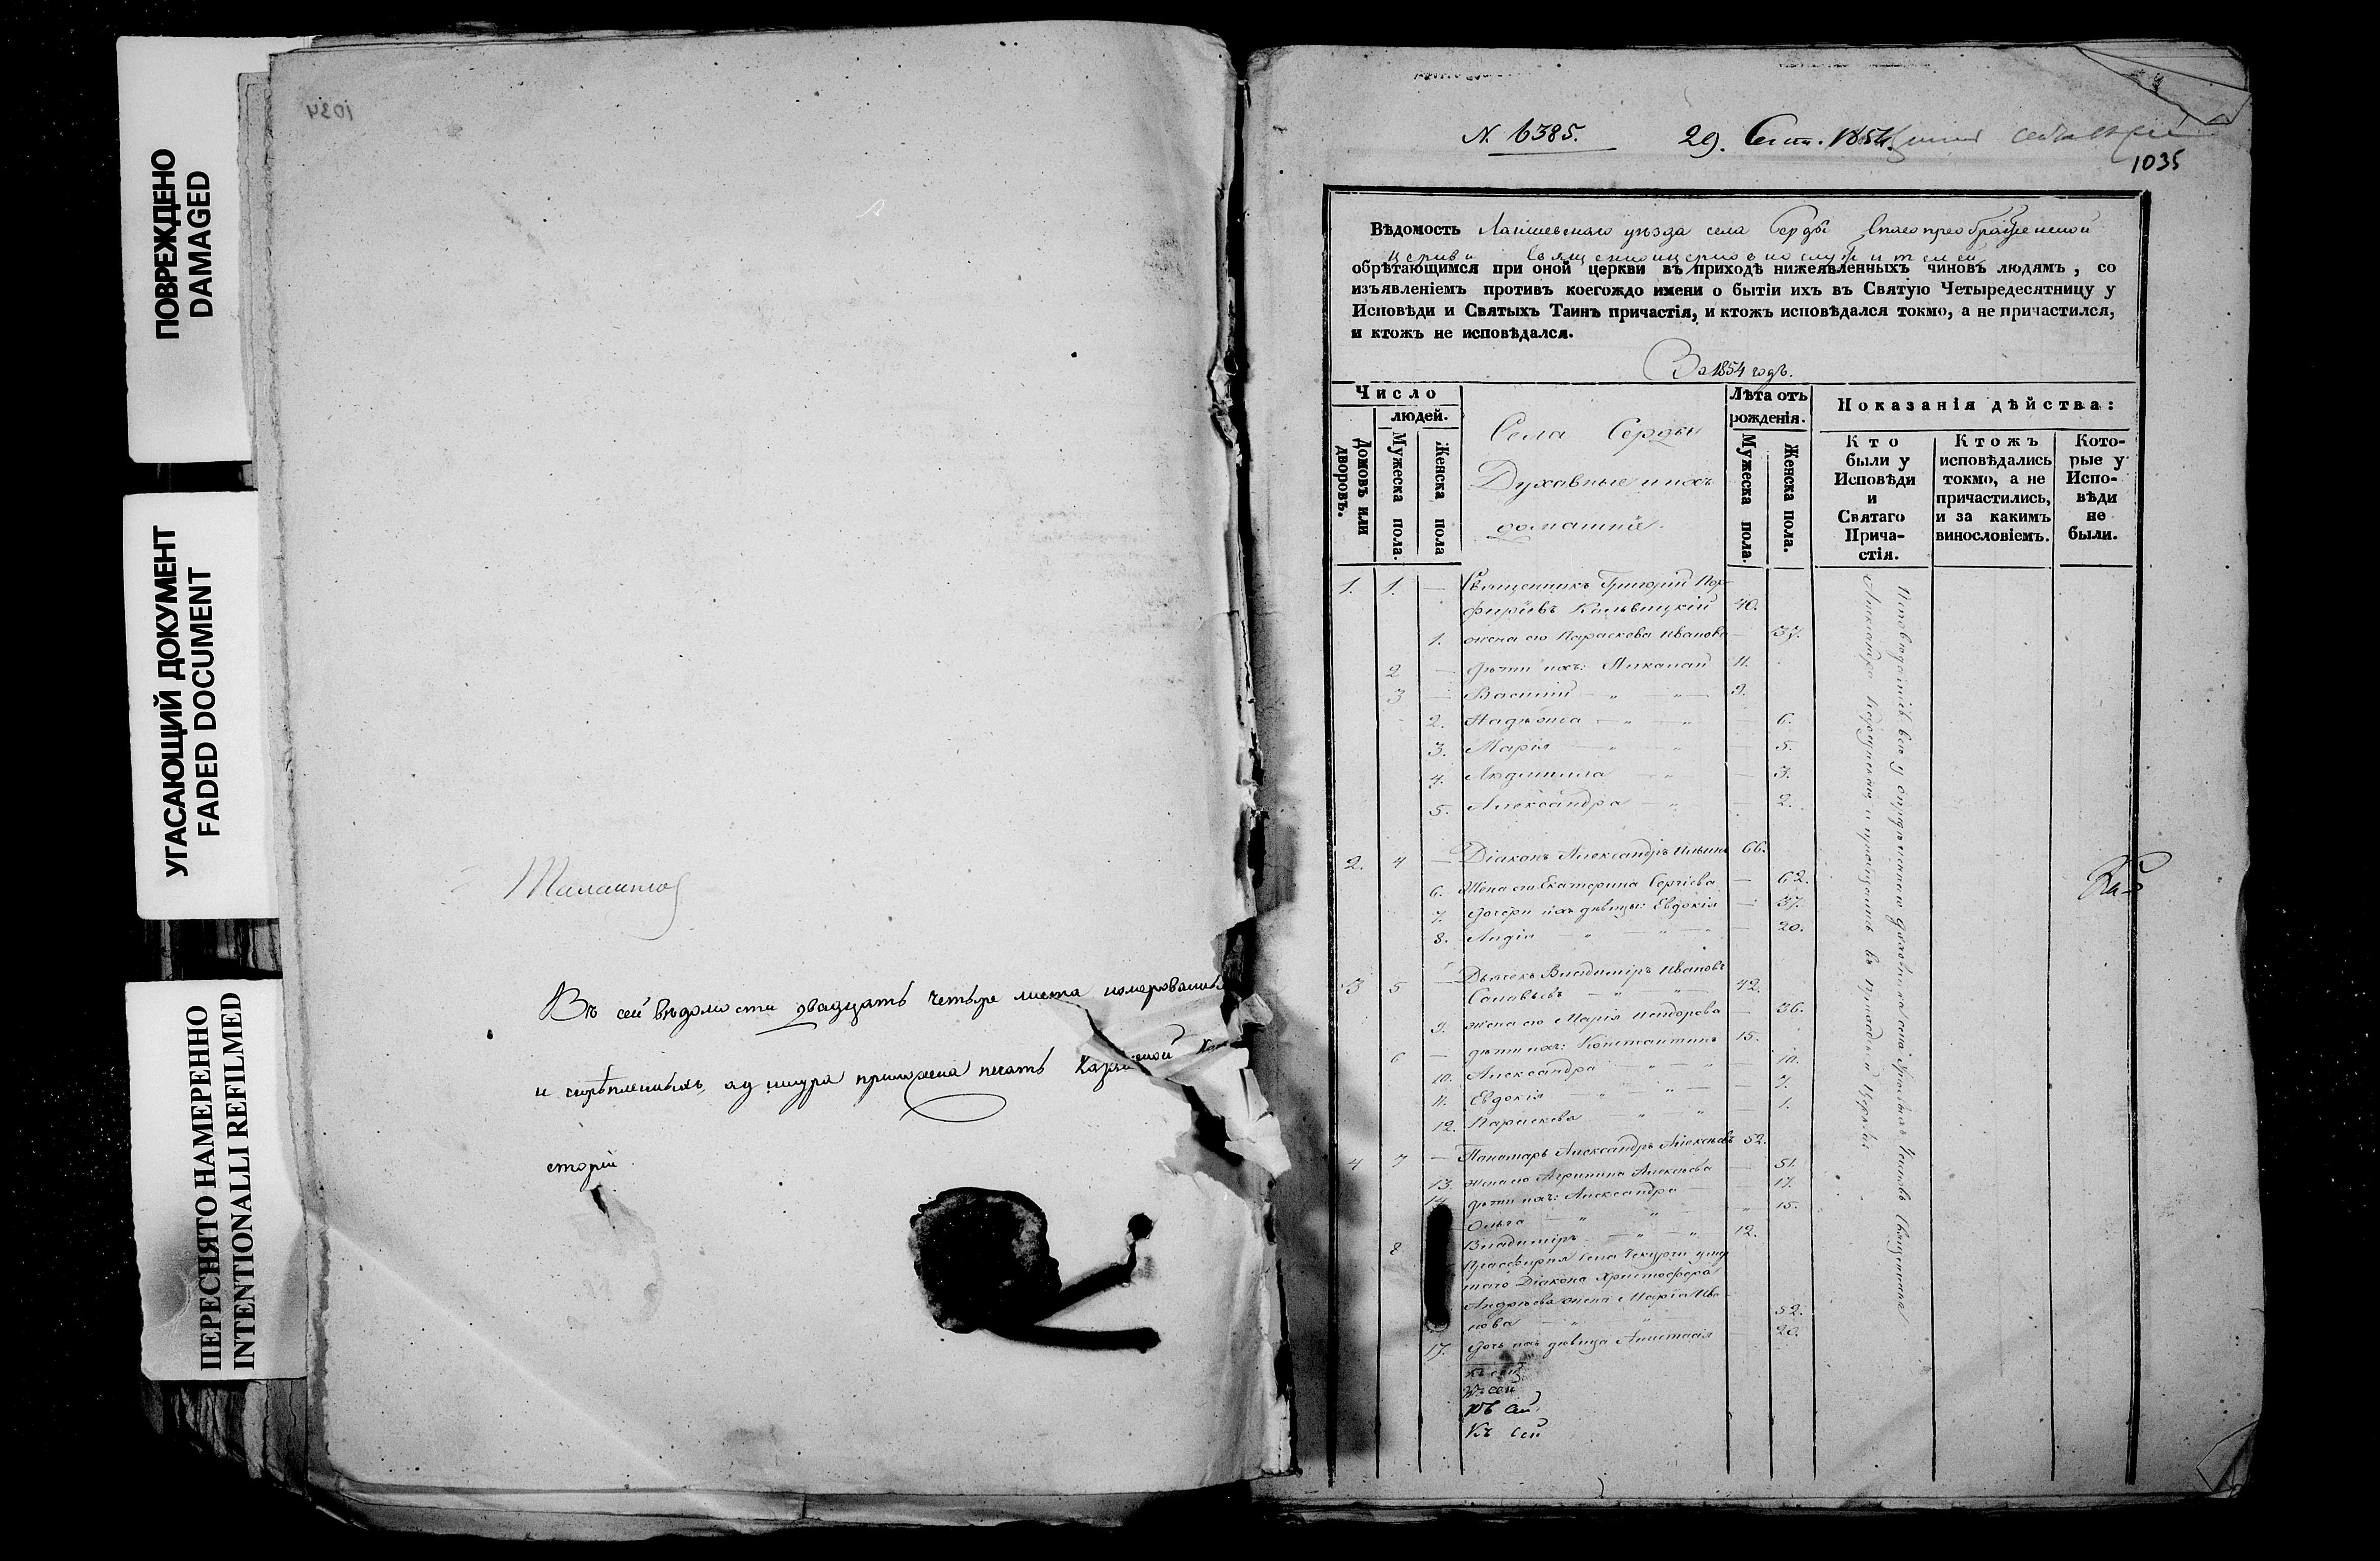 ПОВРЕЖДЕНО
DAMAGED
УГАСАЮЩИЙ ДОКУМЕНТ
FADED DOCUMENT
ПЕРЕСНЯТО НАМЕРЕННО
INTENTIONALLI REFILMED
1034
Въ сей вѣдомости двадцать четыре листа номерованныхъ
и скрѣпленныхъ, а у шнура приложена печать
сторіи.
N. 6385. 29. Сент. 1854
1035
Вѣдомость Лаишевскаго уѣзда села Серды Спасопреображенской
церкви Священноцерковнослужителей
обрѣтающимся при оной церкви въ приходѣ нижеявленныхъ чиновъ людямъ, со
изъявленіемъ противъ коегождо имени о бытіи ихъ въ Святую Четыредесятницу у
Исповѣди и Святыхъ Таинъ причастія, и ктожъ исповѣдался токмо, а не причастился,
и ктожъ не исповѣдался.
За 1854 годъ.
Число
людей.
Домовъ или дворовъ.
Мужеска пола.
Женска пола
Села Серды
Духовные и ихъ
домашніе.
Лѣта отъ
рожденія.
Мужеска пола.
Женска пола.
Показанія дѣйства:
Кто
были у
Исповѣди
и
Святаго
Прича-
стія.
Ктожъ
исповѣдались
токмо, а не
причастились,
и за какимъ
винословіемъ.
Кото-
рые у
Испо-
вѣди
не
были.
1. 1. — Священникъ Григорій Пор-
фиріевъ 40.
1. жена его Параскева Иванова — 37.
2 — дѣти ихъ: Николай 11.
3 — Василій — „ — „ — 9.
2. Надежда — „ — „ 6.
3. Марія — „ — „ — 5.
4. Людмила — „ — 3.
5. Александра — „ — 2.
2. 4 — Діаконъ Александръ Ильинъ 66.
6. Жена его Екатерина Сергіева — 62.
7. дочери ихъ дѣвицы: Евдокія — 37.
8. Лидія — „ — „ — „ — 20.
3 5 — Дьячекъ Владиміръ Ивановъ
Соловьевъ — „ — „ — 42.
9. жена его Марія — 36.
6 — дѣти ихъ: Константинъ 15.
10. Александра — „ — „ 10.
11. Евдокія — „ — „ — 7.
12. Параскева — „ — „ — 1.
4 7 — Пономарь Александръ Алексѣевъ 52.
13. жена его Агрипина Алексѣева — 51.
14. дѣти ихъ: Александра — 17.
Ольга — „ — „ — „ 15.
8 Владиміръ — „ — „ 12.
Просвирня села умер
шаго Діакона Христофора
Андреева жена Марія Ива
нова — „ — „ 52.
17. дочь ихъ дѣвица Анастасія — 20.
Къ сей
Къ сей
Къ сей
Къ сей